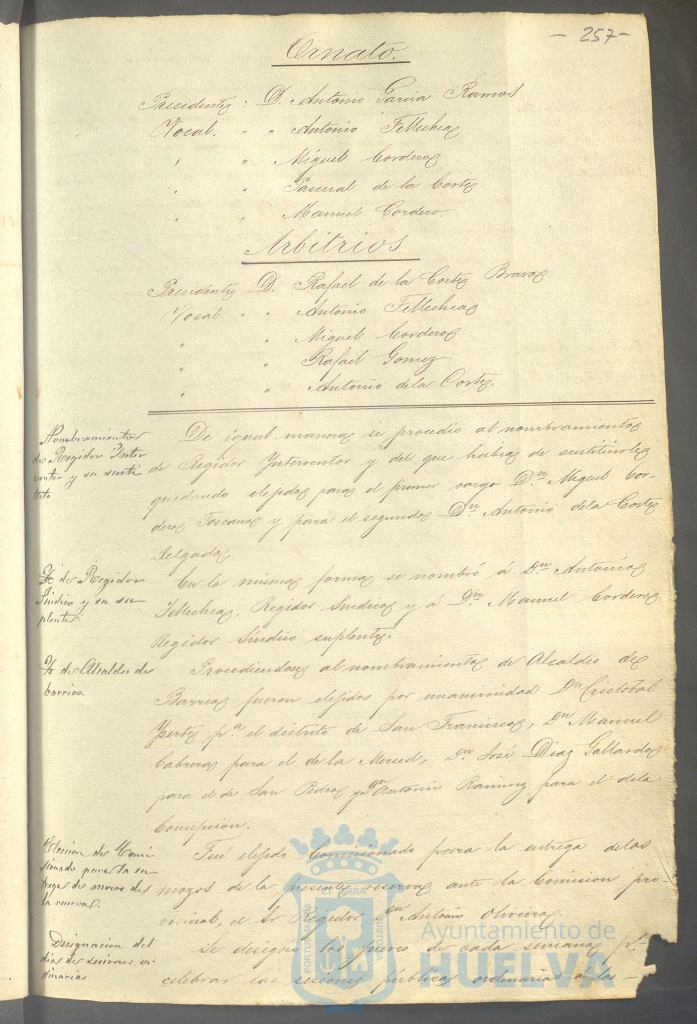 - 257-
Ornato.
Presidente: D. Antonio Garcia Ramos
Vocal. " " Antonio Tellechea
" " Miguel Cordero
" " Pascual de la Corte
" " Manuel Cordero.
Arbitrios
Presidente D. Rafael de la Corte Bravo
Vocal. " " Antonio Tellechea
" " Miguel Cordero
" " Rafael Gomez
" " Antonio dela Corte.
Nombramiento
de Regidor Inter
ventor y su susti
tuto
De igual manera se procedio al nombramiento
de Regidor Interventor y del que habia de sustituirle
quedando elejidos para el primer cargo Dn. Miguel Cor-
dero Toscano y para el segundo Dn. Antonio dela Corte
Delgado.
Yd de Regidor
Sindico y su su
plente.
En la misma forma se nombró á Dn. Antonio
Tellechea, Regidor Sindico y á Dn. Manuel Cordero
Regidor Sindico suplente.
Yd de Alcaldes de
barrios.
Procediendose al nombramiento de Alcaldes de
Barrio fueron elejidos por unanimidad Dn. Cristobal
pa. el distrito de San Francisco, Dn. Manuel
Cabrera para el de la Merced, Dn. José Diaz Gallardo
para el de San Pedro y Dn. Antonio Ramirez para el dela
Concepcion.
Eleccion de Comi
sionado para la en
trega de mozos de
la reserva.
Fué elejido Comisionado para la entrega delos
mozos de la presente reserva ante la Comision pro-
vincial, el Sr Regidor Dn. Antonio Oliveira.
Designacion del
dia de sesiones or
dinarias
Se designa los jueves de cada semana pa.
celebrar las sesiones publicas ordinarias a las
Ayuntamiento de
HUELVA